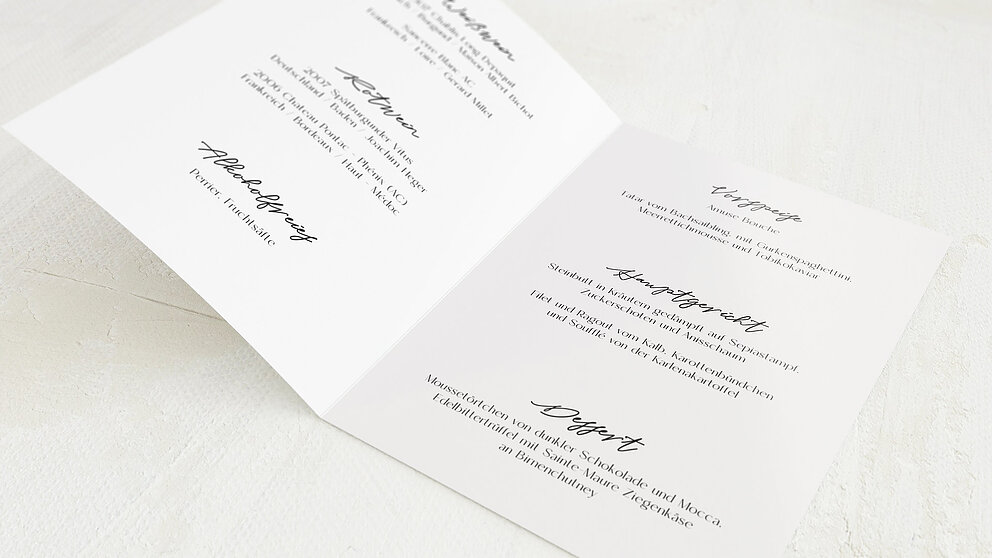 Weißwein
2007 Chablis Long Depaquit
Burgund / Maison Albert Bichot
Sancerre Blanc AC
Frankreich / Loire / Gerard Millet
Rotwein
2007 Spätburgunder Vitus
Deutschland / Baden / Joachim Heger
2006 Chateau Pontac - Phénix (AC)
Frankreich / Bordeaux / Haut - Médoc
Alkoholfreies
Perrier, Fruchtsäfte
Vorspeise
Amuse Bouche
Tatar vom Bachsaibling, mit Gurkenspaghettini,
Meerrettichmousse und Tobikokaviar
Hauptgericht
Steinbutt in Kräutern gedämpft auf Sepiastampf,
Zuckerschoten und Anisschaum
Filet und Ragout vom Kalb, Karottenbündchen
und Soufflé von der Karlenakartoffel
Dessert
Moussetörtchen von dunkler Schokolade und Mocca,
Edelbittertrüffel mit Sainte-Maure Ziegenkäse
an Birnenchutney